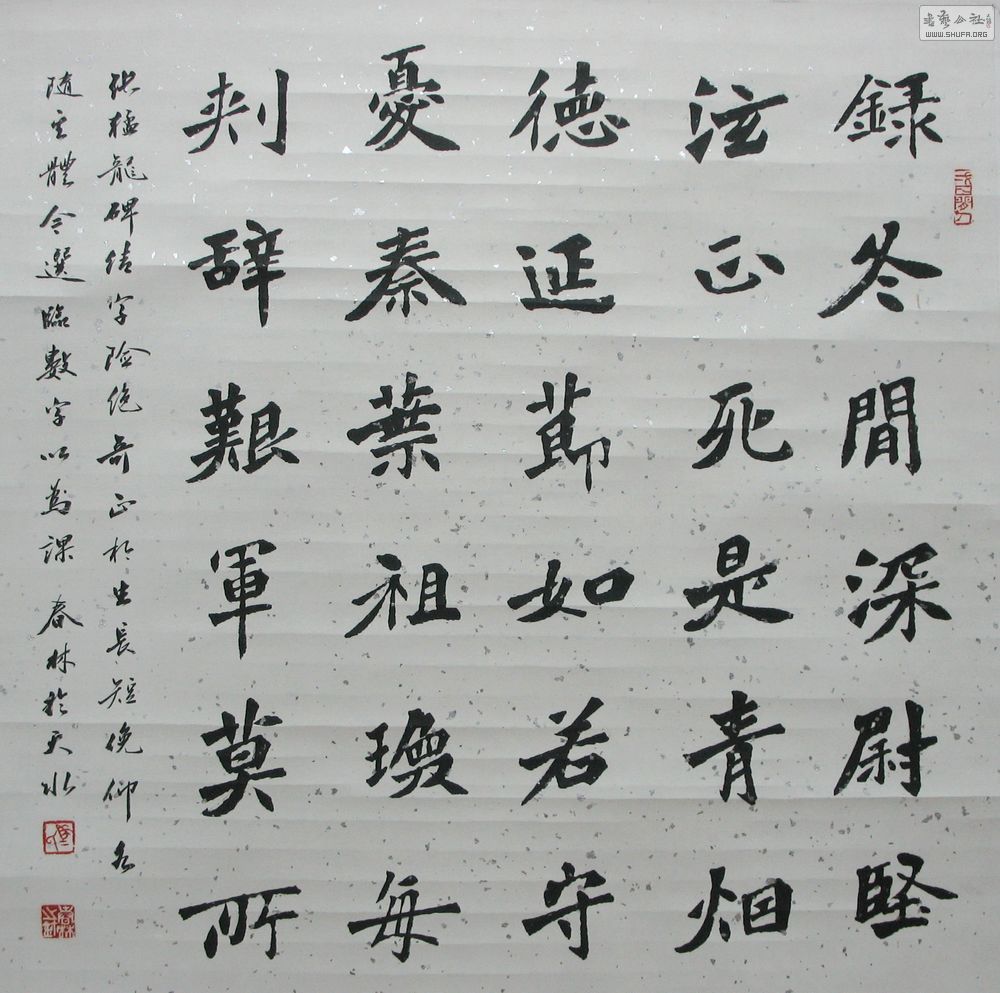 録冬間深尉堅
泫正死是青烟
德延莭如若守
憂秦葉祖瓊每
刾辭艱軍莫所
張猛龍碑结字险绝奇正於生長短俛仰各
随其體今選臨數字以為課 春林於天水
書藝公社
WWW.SHUFA.ORG